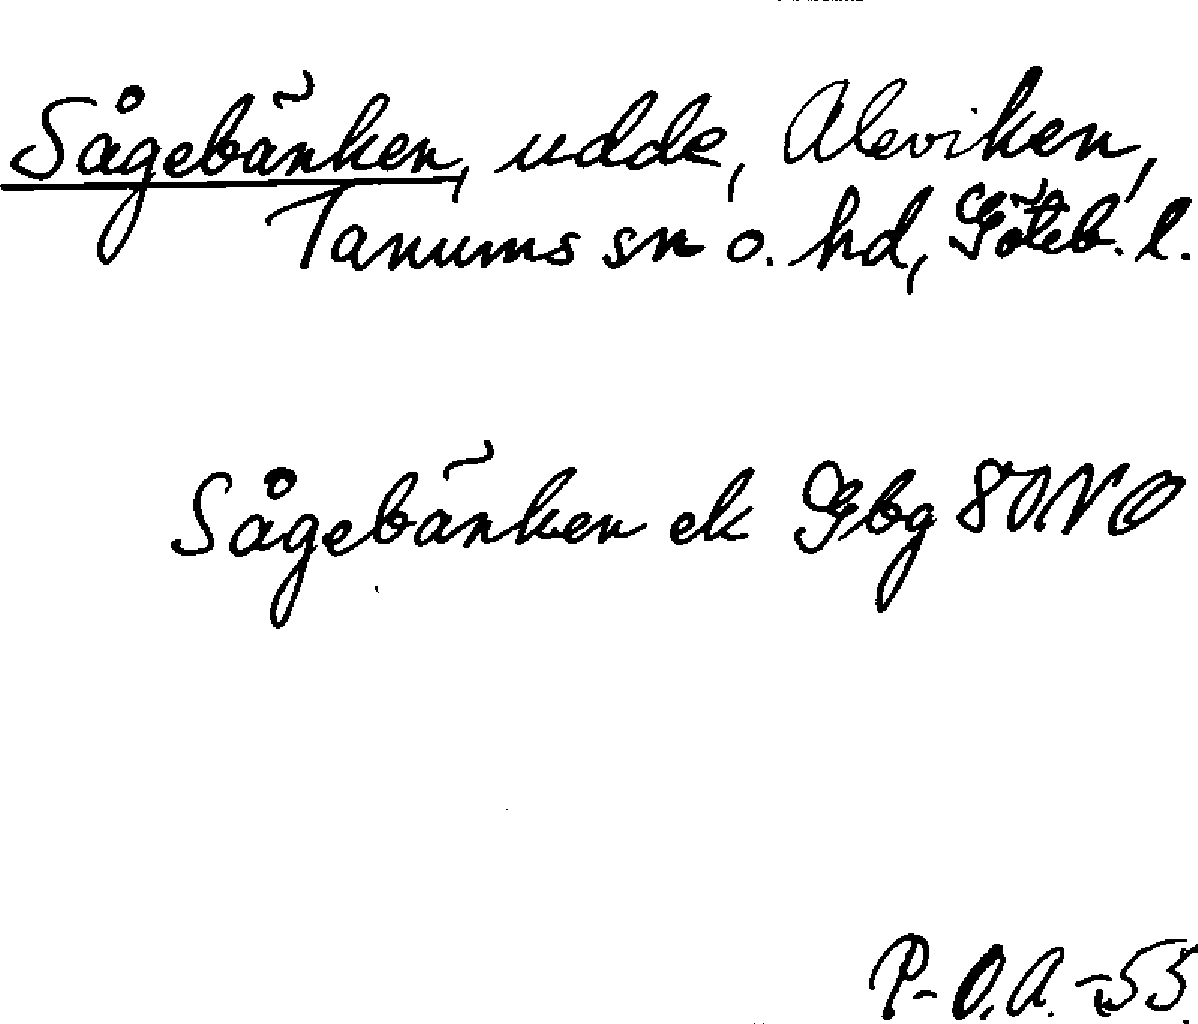 Sågebänken, udde, Aleviken,
Tanums sn o. hd, Göteb. l.
Sågebänken ek Gbg 80 NO
P-O.A. -55